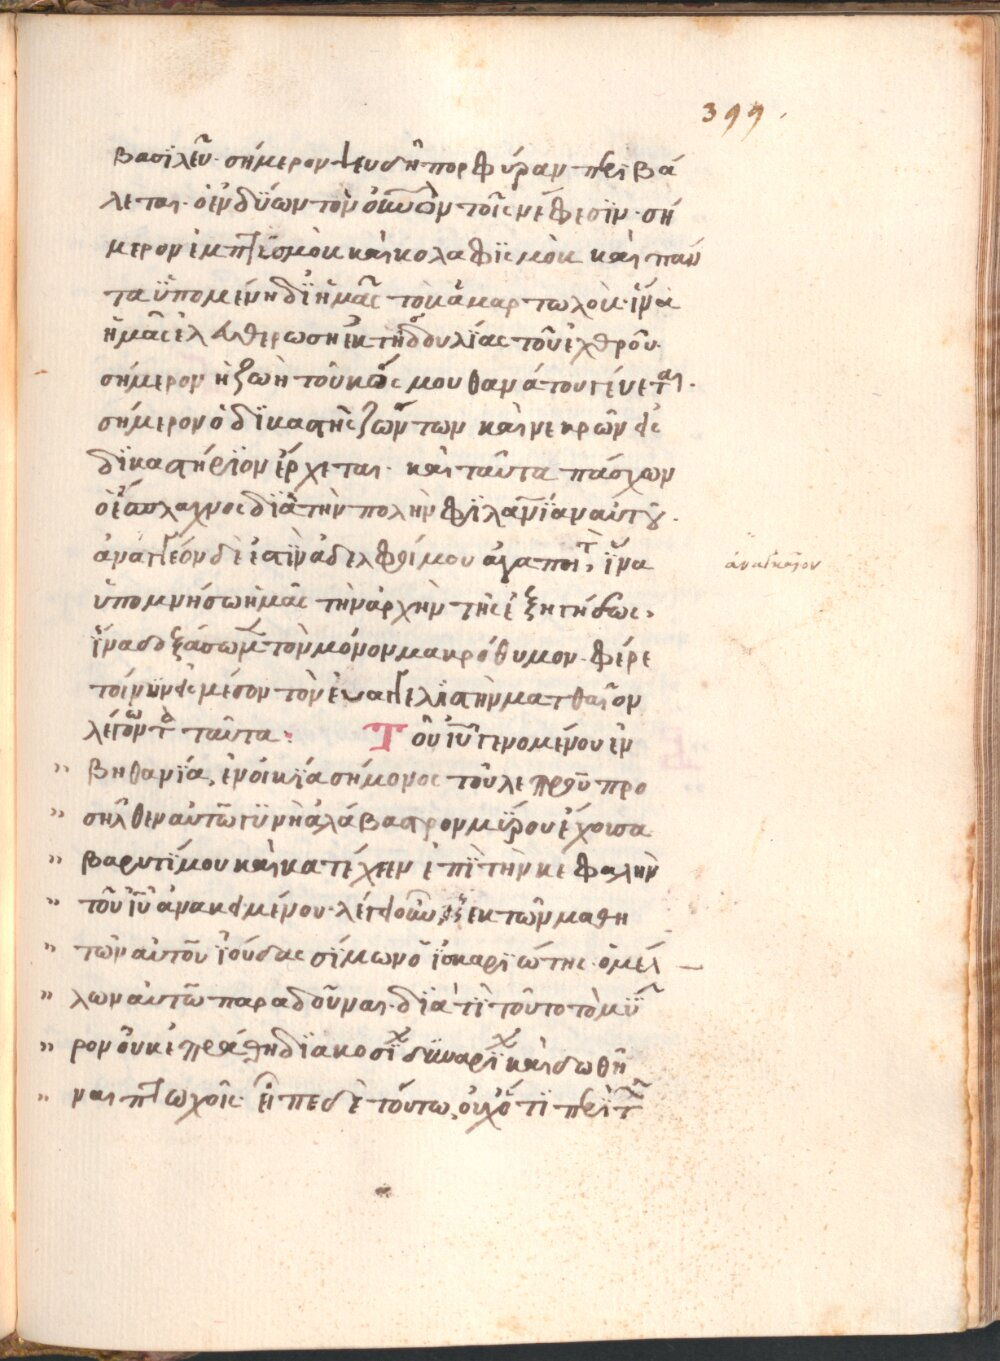 399.
βασϊλεῦ· σήμερον ψευδῆ πορφύραν περιβά
λεται· ὁ ἐνδύων τὸν οὐνὸν τοῖς νέφεσϊν· σή
μερον ἐμπτϊσμὸν καὶ κολαφϊσμὸν καὶ πάν
τα ὑπομένη δϊ ἡμᾶς τοὺς ἁμαρτωλοὺς· ἵνα
ἡμᾶς ἐλευθερώση ἐκ τῆς δουλίας τοῦ ἐχθροῦ·
σήμερον ἡ ζωὴ τοῦ κόσμου θανάτου γίνεται·
σήμερον ὁ δϊκαστὴς ζώντων καὶ νεκρῶν εἰς
δϊκαστήρϊον ἔρχεται· καὶ ταῦτα πάσχων
ὁ εὔσπλαχνος διὰ τὴν πολὴν φϊλανϊαν αὐτοῦ·
ἀναγγεόν δὲ ἐστὶν ἀδελφοί μου ἀγαποιτοὶ, ἵνα
ἀναγκαῖον
ὑπομνήσω ἡμᾶς τὴν ἀρχὴν τῆς ἐξηγήσεως,
ἵνα δοξάσωμεν τὸν μόνον μακρόθυμον· φέρε
τοίνυν εἰς μέσον τὸν εὐαγγελϊστὴν ματθαῖον
λέγοντα ταῦτα: Τοῦ ἰῦ γενομένου ἐν
" βηθανϊα, ἐν οἰκϊα σήμονος τοῦ λεπροῦ προ
" σῆλθεν αὐτῶ γϋνὴ ἀλάβαστρον μϋρου ἔχουσα
" βαρυτίμου καὶ κατέχεεν ἐπϊ τὴν κεφαλὴν
" τοῦ ἰῦ ἀνακειμένου· λέγει οὖν εἷς ἐκ τῶν μαθη
" τῶν αὐτοῦ ἰούδας σίμωνος ἰσκαρϊώτης· ὁ μέλ
" λων αὐτῶ παραδοῦναι· διατὶ τοῦτο τὸ μϋ
" ρον οὐκ ἐπράθη διακοσϊων δηναρϊων καὶ δωθῆ
" ναι πτωχοῖς· εἶπε δὲ τούτω, οὐχ ὅτι περὶ τῶν